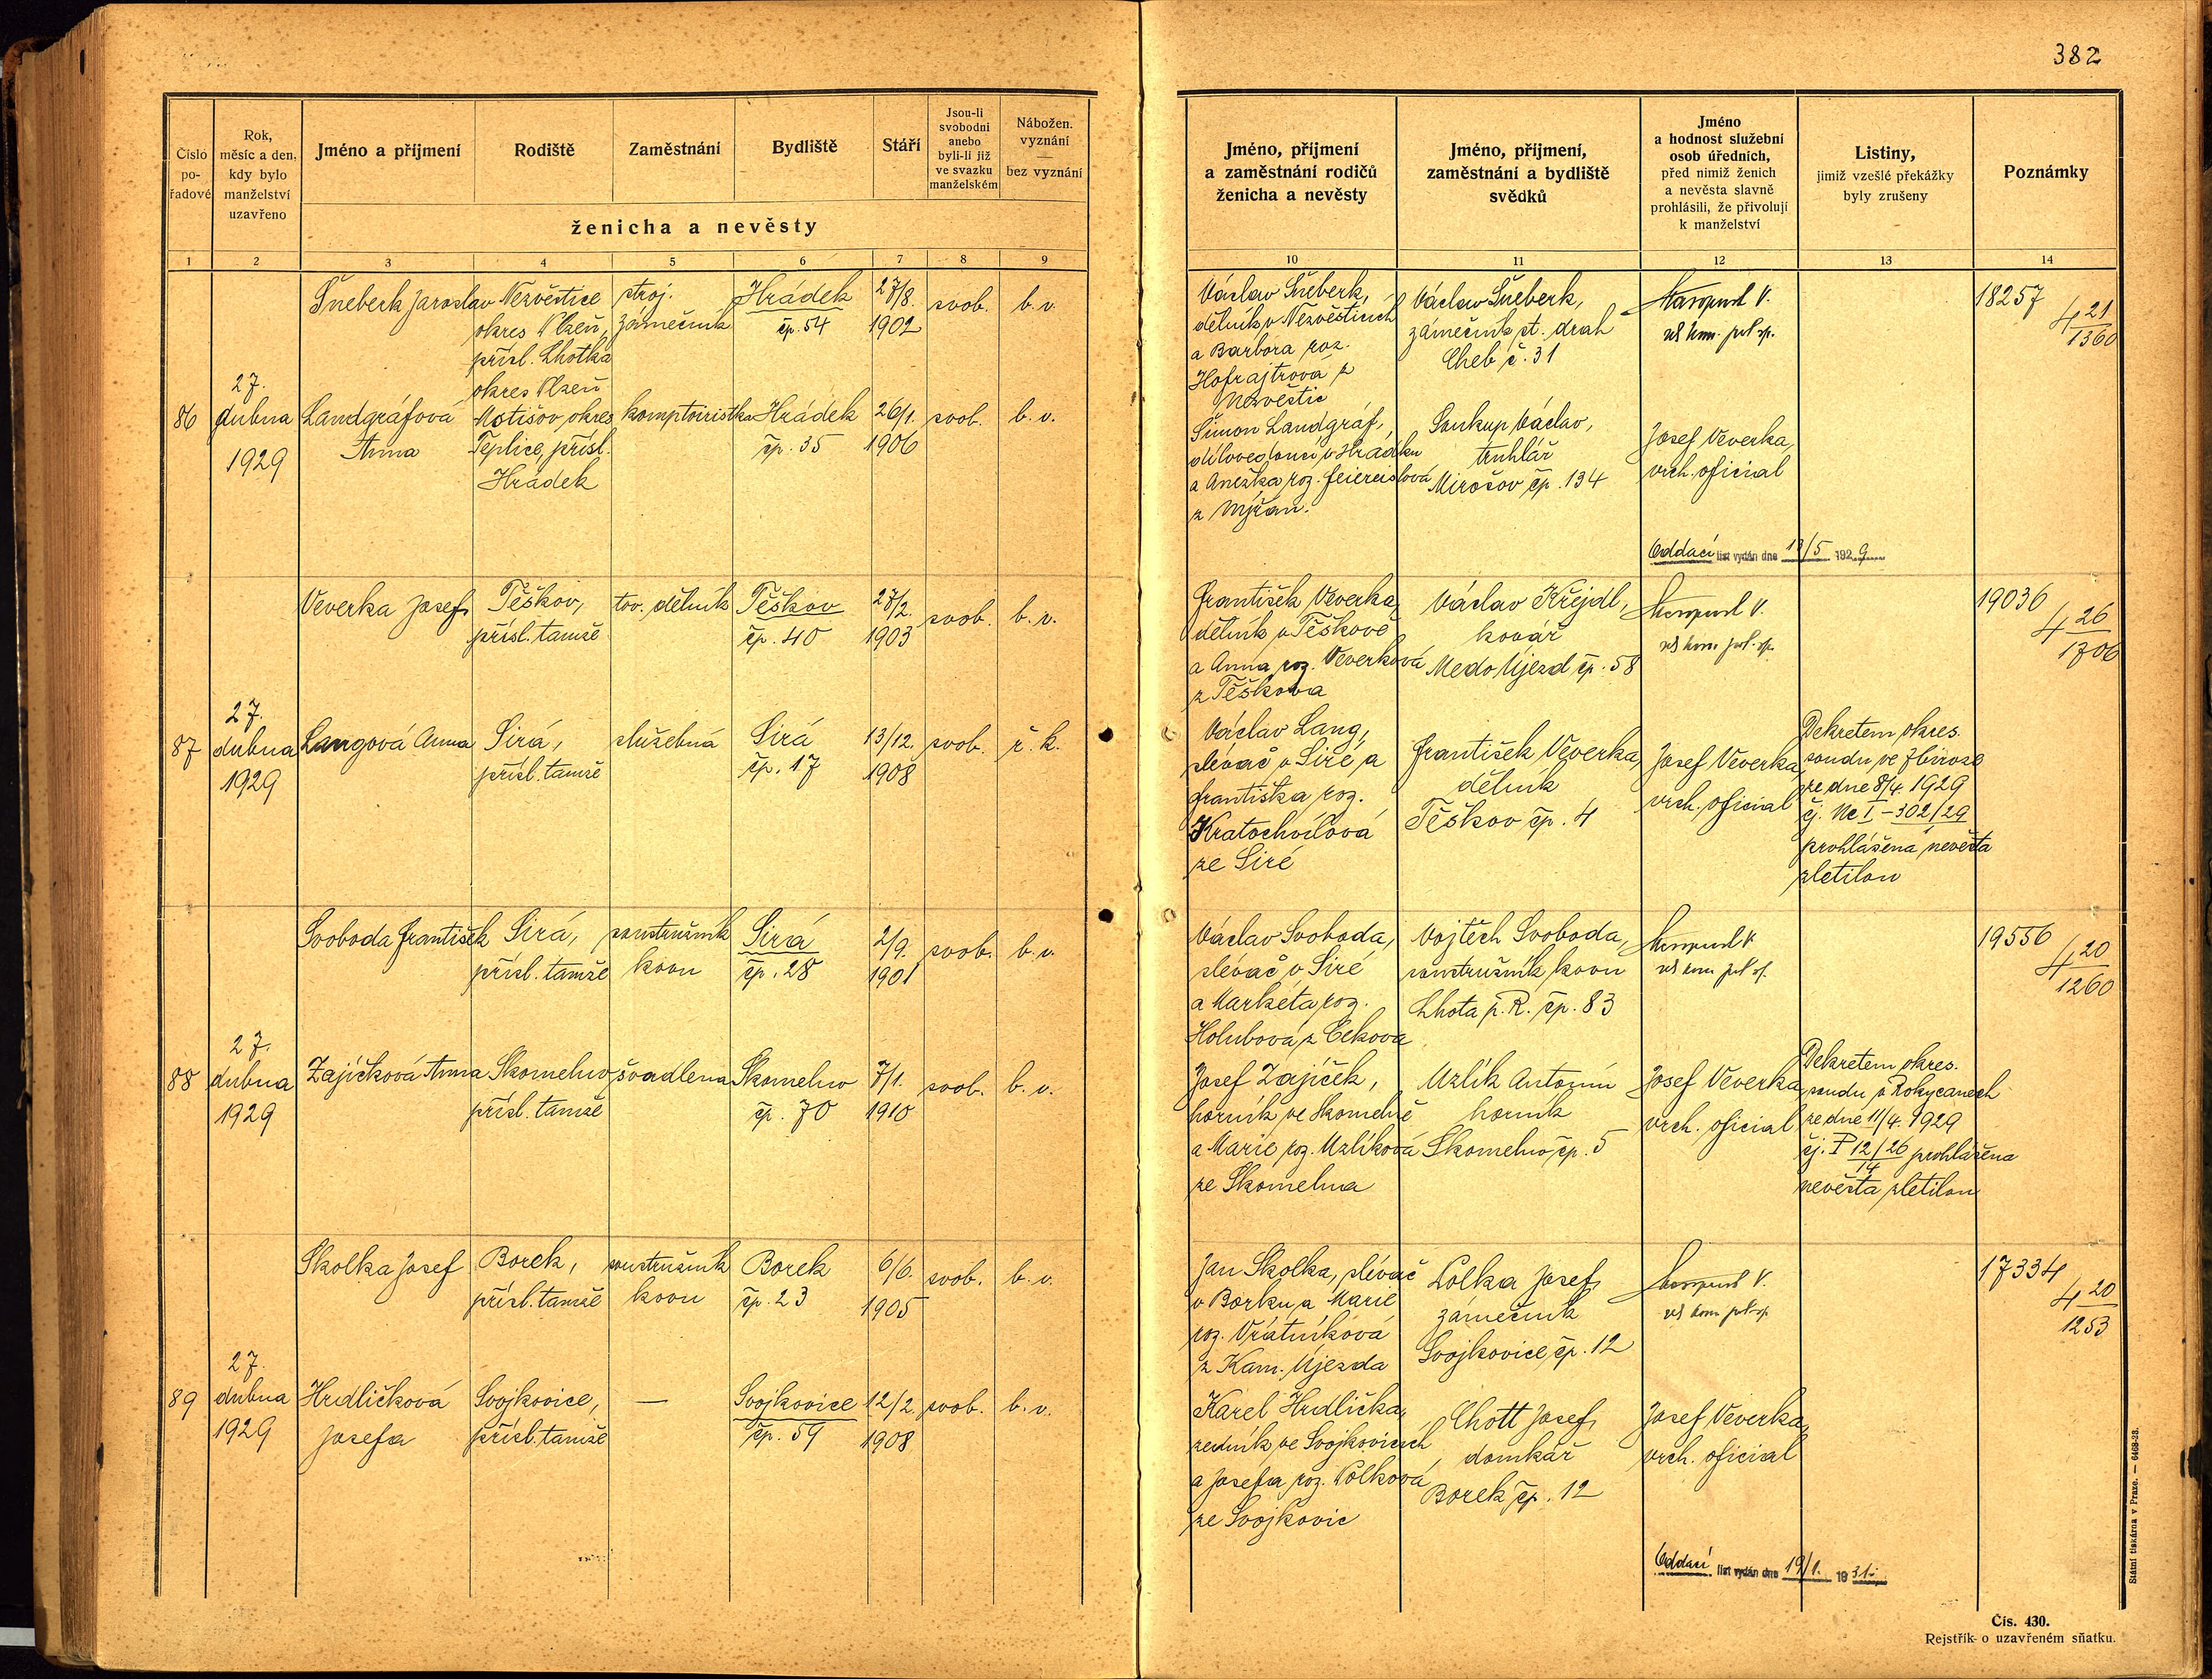 382
Číslo
po-
řadové
Rok,
měsíc a den,
kdy bylo
manželství
uzavřeno
Jméno a příjmení
Rodiště
Zaměstnání
Bydliště
Stáří
Jsou-li
svobodni
anebo
byli-li již
ve svazku
manželském
Nábožen.
vyznání
—
bez vyznání
ženicha a nevěsty
Jméno, příjmení
a zaměstnání rodičů
ženicha a nevěsty
Jméno, příjmení,
zaměstnání a bydliště
svědků
Jméno
a hodnost služební
osob úředních,
před nimiž ženich
a nevěsta slavně
prohlásili, že přivolují
k manželství
Listiny,
jimiž vzešlé překážky
byly zrušeny
Poznámky
1 2 3 4 5 6 7 8 9
10 11 12 13 14
86
27.
dubna
1929
Šneberk Jaroslav
Nezvěstice
okres Plzeň,
přísl. Lhotka
okres Plzeň
stroj.
zámečník
Hrádek
čp. 54
27/8.
1902
svob.
b. v.
Landgráfová
Anna
Motišov okres
Teplice, přísl.
Hrádek
komptoiristka
Hrádek
čp. 35
26/1.
1906
svob.
b. v.
Václav Šneberk,
dělník v Nezvěsticích
a Barbora roz.
Hofrajtrová z
Nezvěstic
Šimon Landgráf,
dílovedoucí v Hrádku
a Anežka roz. Feiereislová
z Mýžan.
Václav Šneberk,
zámečník st. drah
Cheb č. 31
Soukup Václav,
truhlář
Mirošov čp. 134
Josef Veverka,
vrch. oficial
Oddací list vydán dne 13/5 1929
18257
4 21/1360
87
27.
dubna
1929
Veverka Josef
Těškov,
přísl. tamže
tov. dělník
Těškov
čp. 40
27/2.
1903
svob.
b. v.
Langová Anna
Sirá,
přísl. tamže
služebná
Sirá
čp. 17
13/12.
1908
svob.
ř. k.
František Veverka,
dělník v Těškově
a Anna roz. Veverková
z Těškova
Václav Lang,
slévač v Siré a
Františka roz.
Kratochvílová
ze Siré
Václav Křejdl,
kovář
Medo Újezd čp. 58
František Veverka,
dělník
Těškov čp. 4
Josef Veverka,
vrch. oficial
Dekretem okres.
soudu ve Zbiroze
ze dne 8/4. 1929
čj. Nc I – 302/29
prohlášena nevěsta
zletilou
19036
4 26/1706
88
27.
dubna
1929
Svoboda František
Sirá,
přísl. tamže
soustružník
kovu
Sirá
čp. 28
2/9.
1901
svob.
b. v.
Zajíčková Anna
Skomelno
přísl. tamže
švadlena
Skomelno
čp. 70
7/1.
1910
svob.
b. v.
Václav Svoboda,
slévač v Siré
a Markéta roz.
Holubová z Cekova
Josef Zajíček,
horník ve Skomelně
a Marie roz. Uzlíková
ze Skomelna
Vojtěch Svoboda,
soustružník kovu
Lhota p. R. čp. 83
Uzlík Antonín
horník
Skomelno čp. 5
Josef Veverka,
vrch. oficial
Dekretem okres.
soudu v Rokycanech
ze dne 11/4. 1929
čj. P 12/26 prohlášena
14
nevěsta zletilou
19556
4 20/1260
89
27.
dubna
1929
Skolka Josef
Borek,
přísl. tamže
soustružník
kovu
Borek
čp. 23
6/6.
1905
svob.
b. v.
Hrdličková
Josefa
Svojkovice,
přísl. tamže
—
Svojkovice
čp. 59
12/2.
1908
svob.
b. v.
Jan Skolka, slévač
v Borku a Marie
roz. Vrátníková
z Kam. Újezda
Karel Hrdlička,
zedník ve Svojkovicích
a Josefa roz. Polková
ze Svojkovic
Polka Josef,
zámečník
Svojkovice čp. 12
Chott Josef,
domkář
Borek čp. 12
Josef Veverka,
vrch. oficial
Oddací list vydán dne 19/1. 1931.
17334
4 20/1253
Státní tiskárna v Praze. — 6468-28.
Čís. 430.
Rejstřík o uzavřeném sňatku.